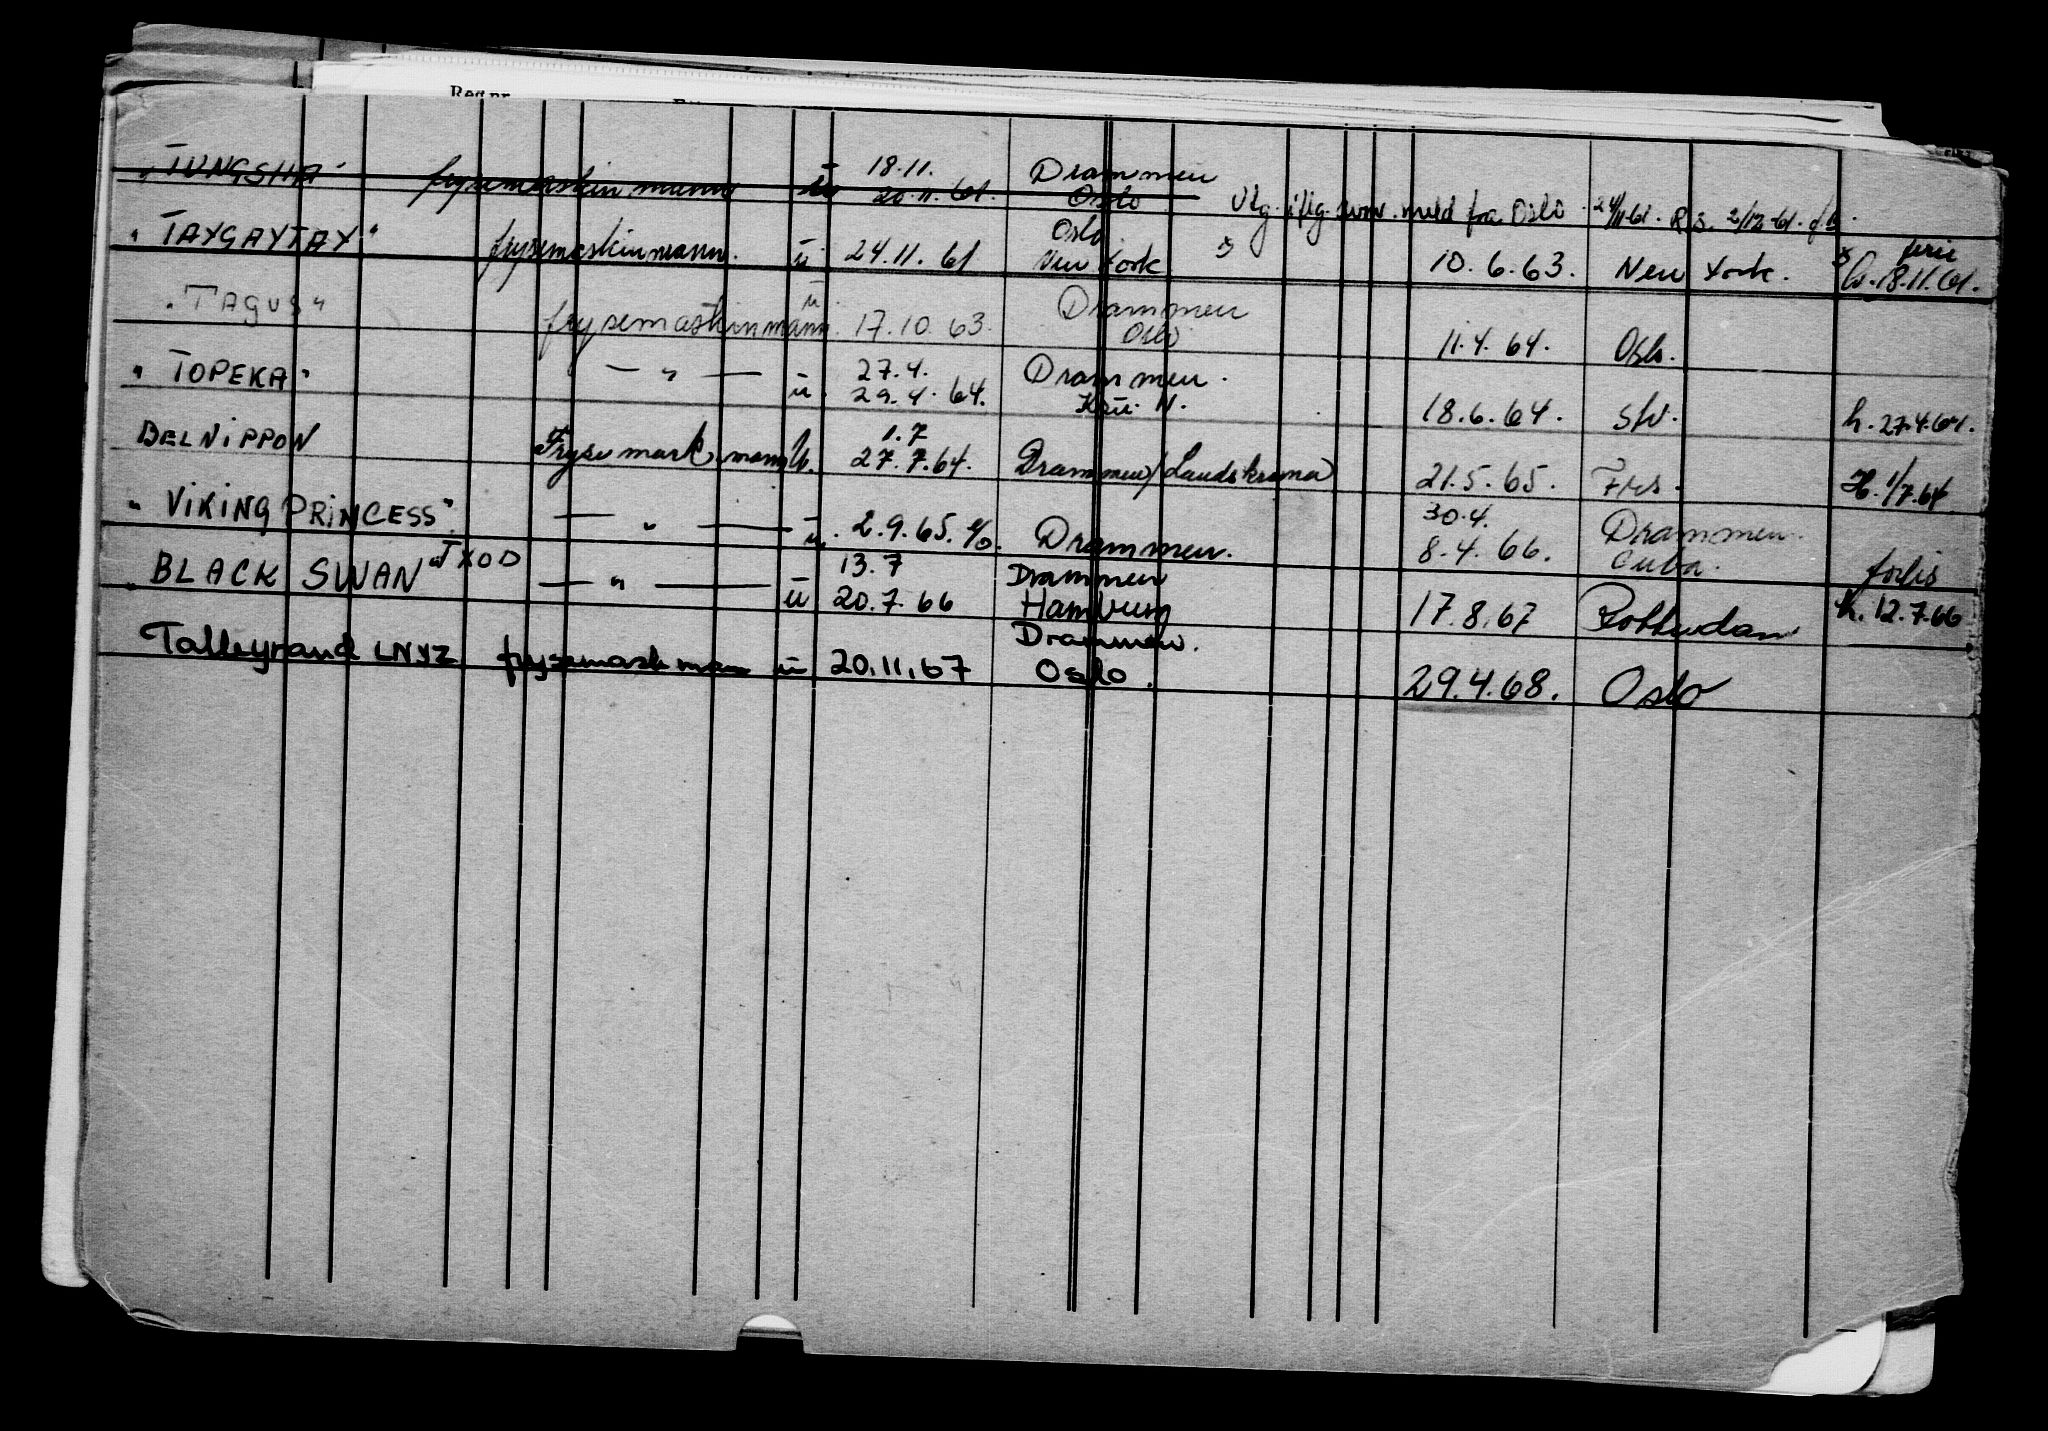 Reg nr.
"TUNGSHA" frysemaskinmann ü 18.11. 20.11.61. Drammen Oslo Utg. iflg. mld fra Oslo 24/11-61. R.S. 2/12-61.
"TAYGAYTAY" frysemaskinmann. ü 24.11.61 Oslo New York 10.6.63. New York. ferie 18.11.61.
"TAGUS" frysemaskinmann. ü. 17.10.63. Drammen Oslo 11.4.64. Oslo.
"TOPEKA" — " — ü. 27.4. 29.4.64. Drammen. 18.6.64. h. 27.4.64.
BELNIPPON Fryse mask. mann ü. 1.7 27.7.64. Drammen/Landskrona 21.5.65. H. 1/7.64
"VIKING PRINCESS". — " — ü. 2.9.65. Drammen. 30.4. 8.4.66. Drammen. Cuba. forlis
"BLACK SWAN" JXOD — " — ü 13.7 20.7.66 Drammen Hamburg 17.8.67 Rotterdam h. 12.7.66
Talleyrand LNYZ frysemask man ü 20.11.67 Drammen. Oslo. 29.4.68. Oslo